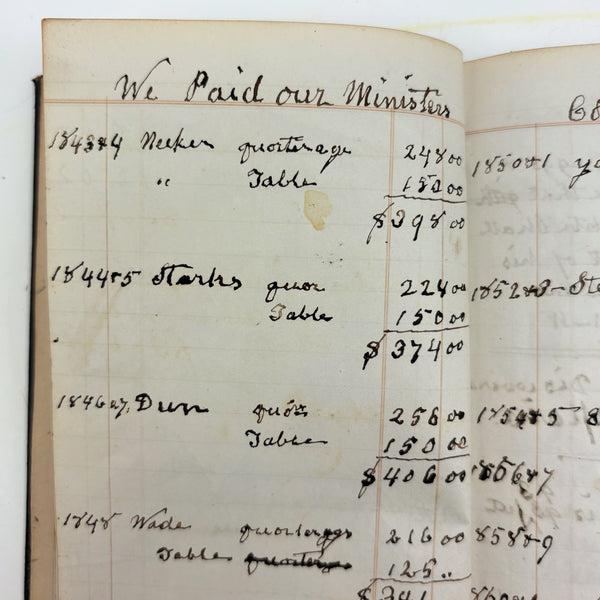 We Paid our Ministers
1843&4 Meeker quarterage 248 00
" Table 150 00
$398 00
1844&5 Starks quar 224 00
Table 150 00
$374 00
1846&7 Dunn quar 256 00
Table 150 00
$406 00
1848 Wade quarterage 216 00
Table 125 "
$341
1850&1
1852&3 - Ste
1854&5 8
1856&7
8589